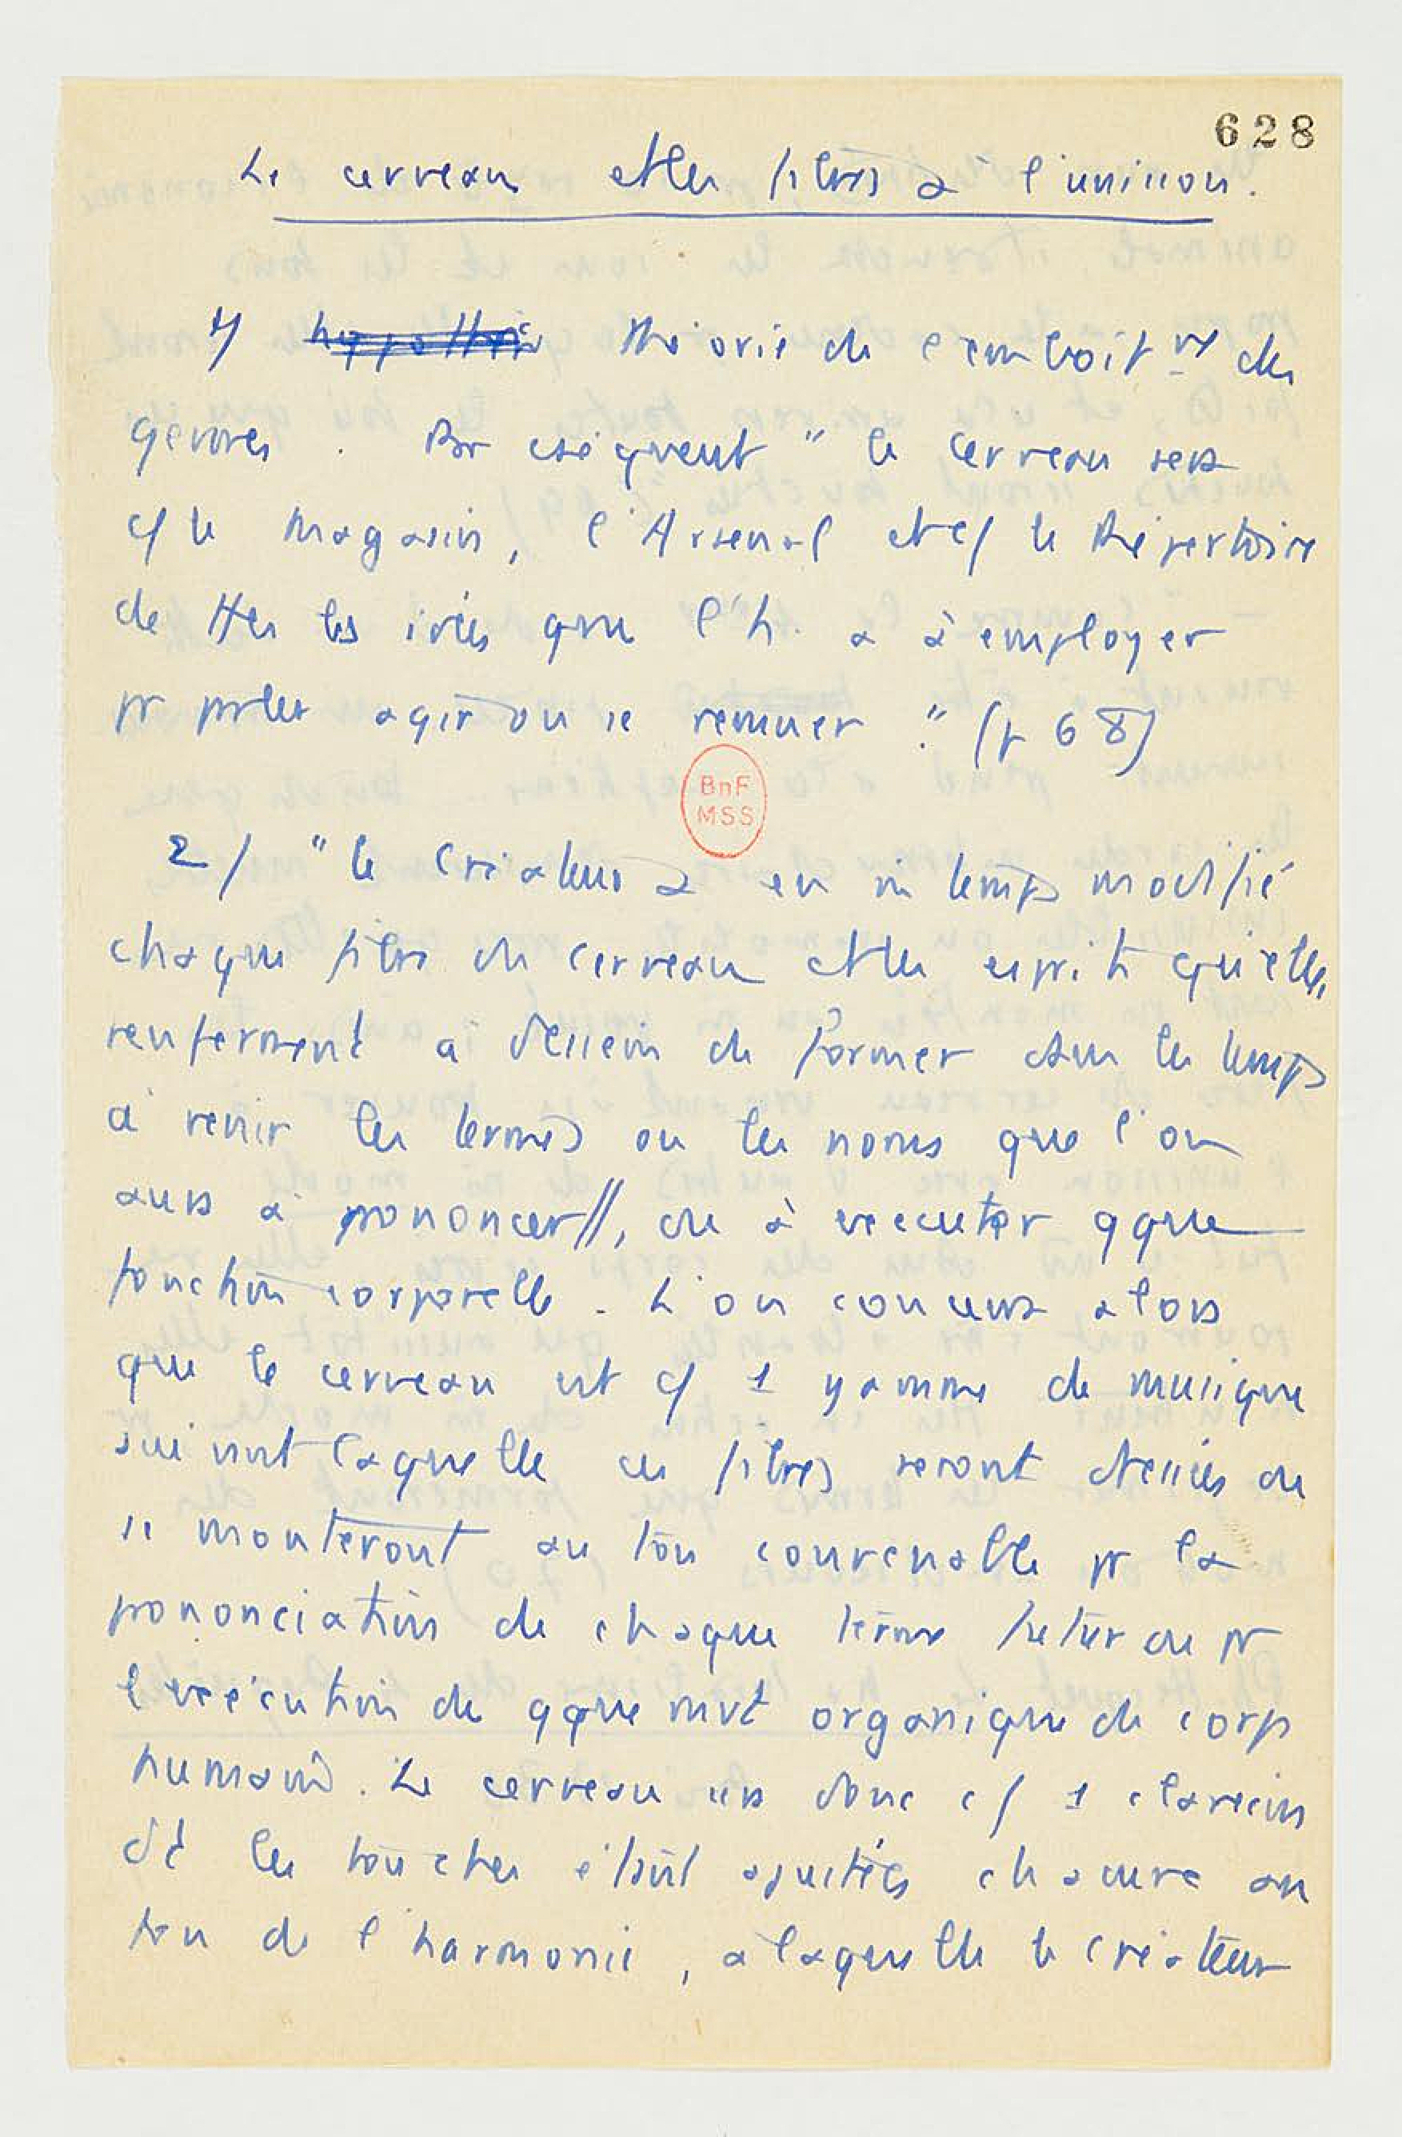 628
Le cerveau et les fibres à l'unisson.
1/ hypothèse Théorie de l'emboit nt des
germes. Par cséquent " le cerveau sera
c/ le Magasin, l'Arsenal et c/ le Répertoire
de ttes les idées que l'h. a à employer
pr parler agir ou se remuer " (p 68)
BnF
MSS
2/ " le Créateur a en m temps modifié
chaque fibre du cerveau et les esprits qu'elles
renferment à dessein de former dans les temps
à venir les termes ou les noms que l'on
aura à prononcer//, ou à executer qque
fonction corporelle. L'on concevra alors
que le cerveau est c/ 1 gamme de musique
suivant laquelle ces fibres seront dressées ou
se monteront au ton convenable pr la
prononciation de chaque terme futur ou pr
l'exécution de qque mvt organique du corps
humain. Le cerveau sera donc c/ 1 clavecin
dt les touches étaient ajustées chacune au
ton de l'harmonie, à laquelle le Créateur